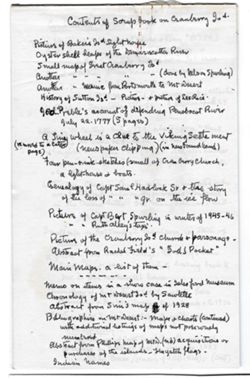 Contents of Scrap book on Cranberry Isd.
Picture of Bakers Isd Light house
Oyster shell heaps of the Damariscotta River
Small maps of Great Cranberry Isd
Another " " " " (done by Nelson Spurling)
Another - " from Portsmouth to Mt Desert
History of Sutton Isd - Picture of
Preble's account of defending Penobscot River
July 22-1779 (5 pages)
A Ding wheel is a Clue to the Viking Settlement
(news paper clipping) (in newfoundland)
(moved to a later page)
Four pen-ink sketches (small) of Cranberry Church,
a lighthouse & boats.
Genealogy of Capt Saml Hadlock Sr & the story
of the loss of " " Jr. on the ice floe
Picture of Capt Bert Spurling in winter of 1945-46
" " Ruth
Picture of the Cranberry Isd Church & parsonage -
Abstract from Rachel Field's "God's Pocket"
Main Maps - a list of them -
Memo on items in a show case in Islesford Museum
Chronology of Mt Desert Isd by Sawtelle
Abstract from map of 1928
Bibliographies on Mt Desert - Maps & charts
with additional listings of maps not previously
mentioned
Abstract from Phillips map of acquisitions or
purchases of the islands -
Indian Names